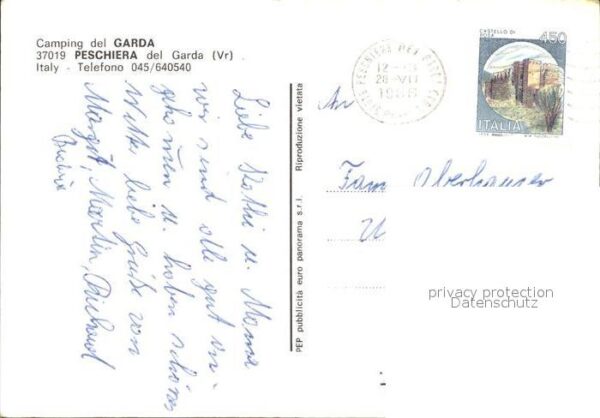 Camping del GARDA
37019 PESCHIERA del Garda (Vr)
Italy - Telefono 045/640540
Liebe Kathi u. Mama
wir sind alle gut
u. haben schönes
Wetter, liebe Grüße von
Margit, Martin, Richard
PEP pubblicità euro panorama s.r.l. Riproduzione vietata
12
28-VII
CASTELLO DI
450
ITALIA
An
Fam Oberhauser
privacy protection
Datenschutz